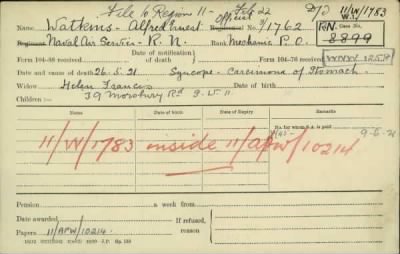 File to Region 11 - Feb 22 D/D 11/W/1783
Name Watkins - Alfred Ernest Official Regimental No. F/1762 RN Case No.
Regiment Naval Air Service - R.N. Rank Mechanic P.O. 8899
Date of notification
Form 104-88 received of death Form 104-76 received
Date and cause of death 26.5.21. Syncope - Carcinoma of Stomach
Widow Helen Frances Date of birth
Children 39 Morsbury Rd S.W. 11
Names Date of Birth Date of Expiry Remarks
No. for whom S.A. is paid
9-6-21
11/W/1783 inside 11/APW/10214
Pension a week from
Date awarded If refused,
Papers 11/APW/10214. reason